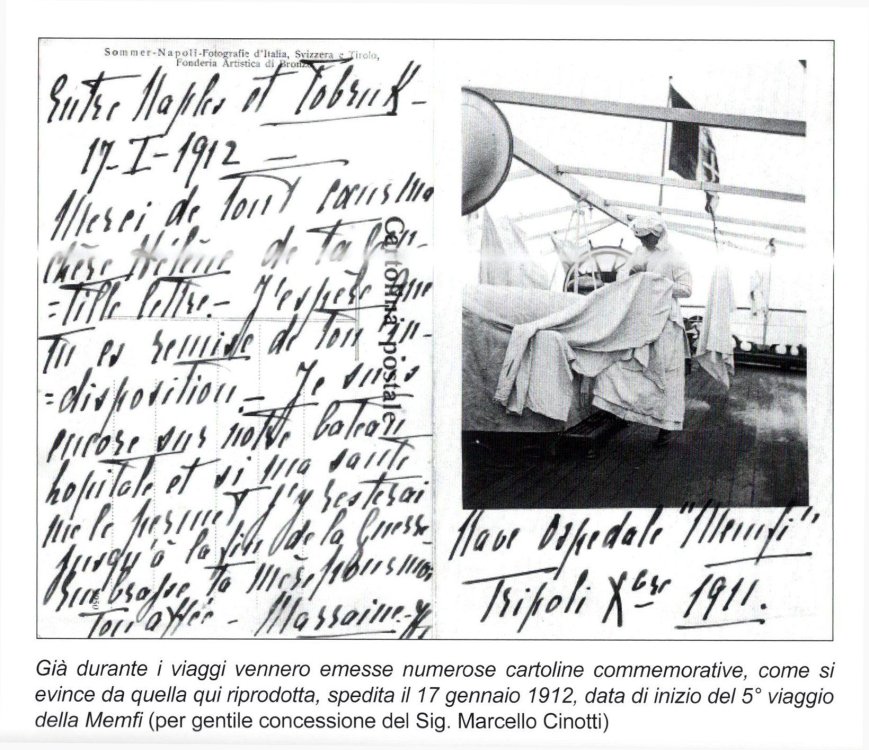 Sommer-Napoli-Fotografie d'Italia, Svizzera e Tirolo,
Fonderia Artistica di Bronzo
Entre Naples et Tobruk -
17-I-1912 -
Merci de tout cœur ma
chère Hélène de ta gen-
=tille lettre. - J'espère que
tu es remise de ton in-
=disposition. - Je suis
encore sur notre bateau
hopitale et si ma santé
me le permet j'y resterai
jusqu'à la fin de la Guerre
Embrasse ta mère pour moi
Ton aff - Marraine -
Cartolina postale
Nave Ospedale "Memfi"
Tripoli Xbre 1911.
Già durante i viaggi vennero emesse numerose cartoline commemorative, come si
evince da quella qui riprodotta, spedita il 17 gennaio 1912, data di inizio del 5° viaggio
della Memfi (per gentile concessione del Sig. Marcello Cinotti)